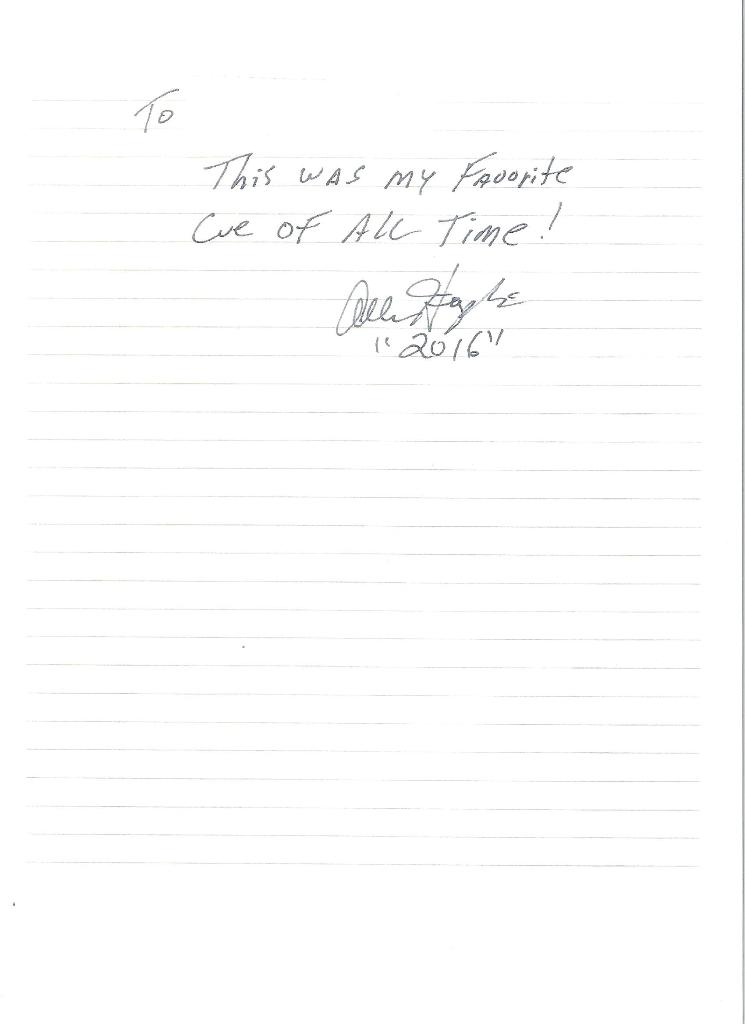 To
This was my Favorite
Cue of All Time!
"2016"